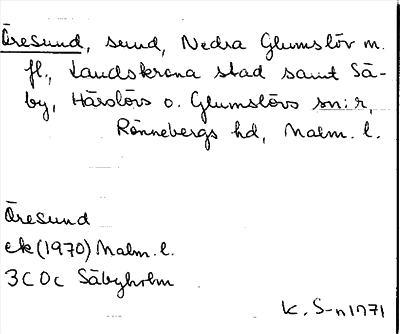 Öresund, sund, Nedra Glumslöv m.
fl., Landskrona stad samt Sä-
by, Härslövs o. Glumslövs sn:r,
Rönnebergs hd, Malm. l.
Öresund
ek (1970) Malm. l.
3C 0c Säbyholm
K. S-n 1971